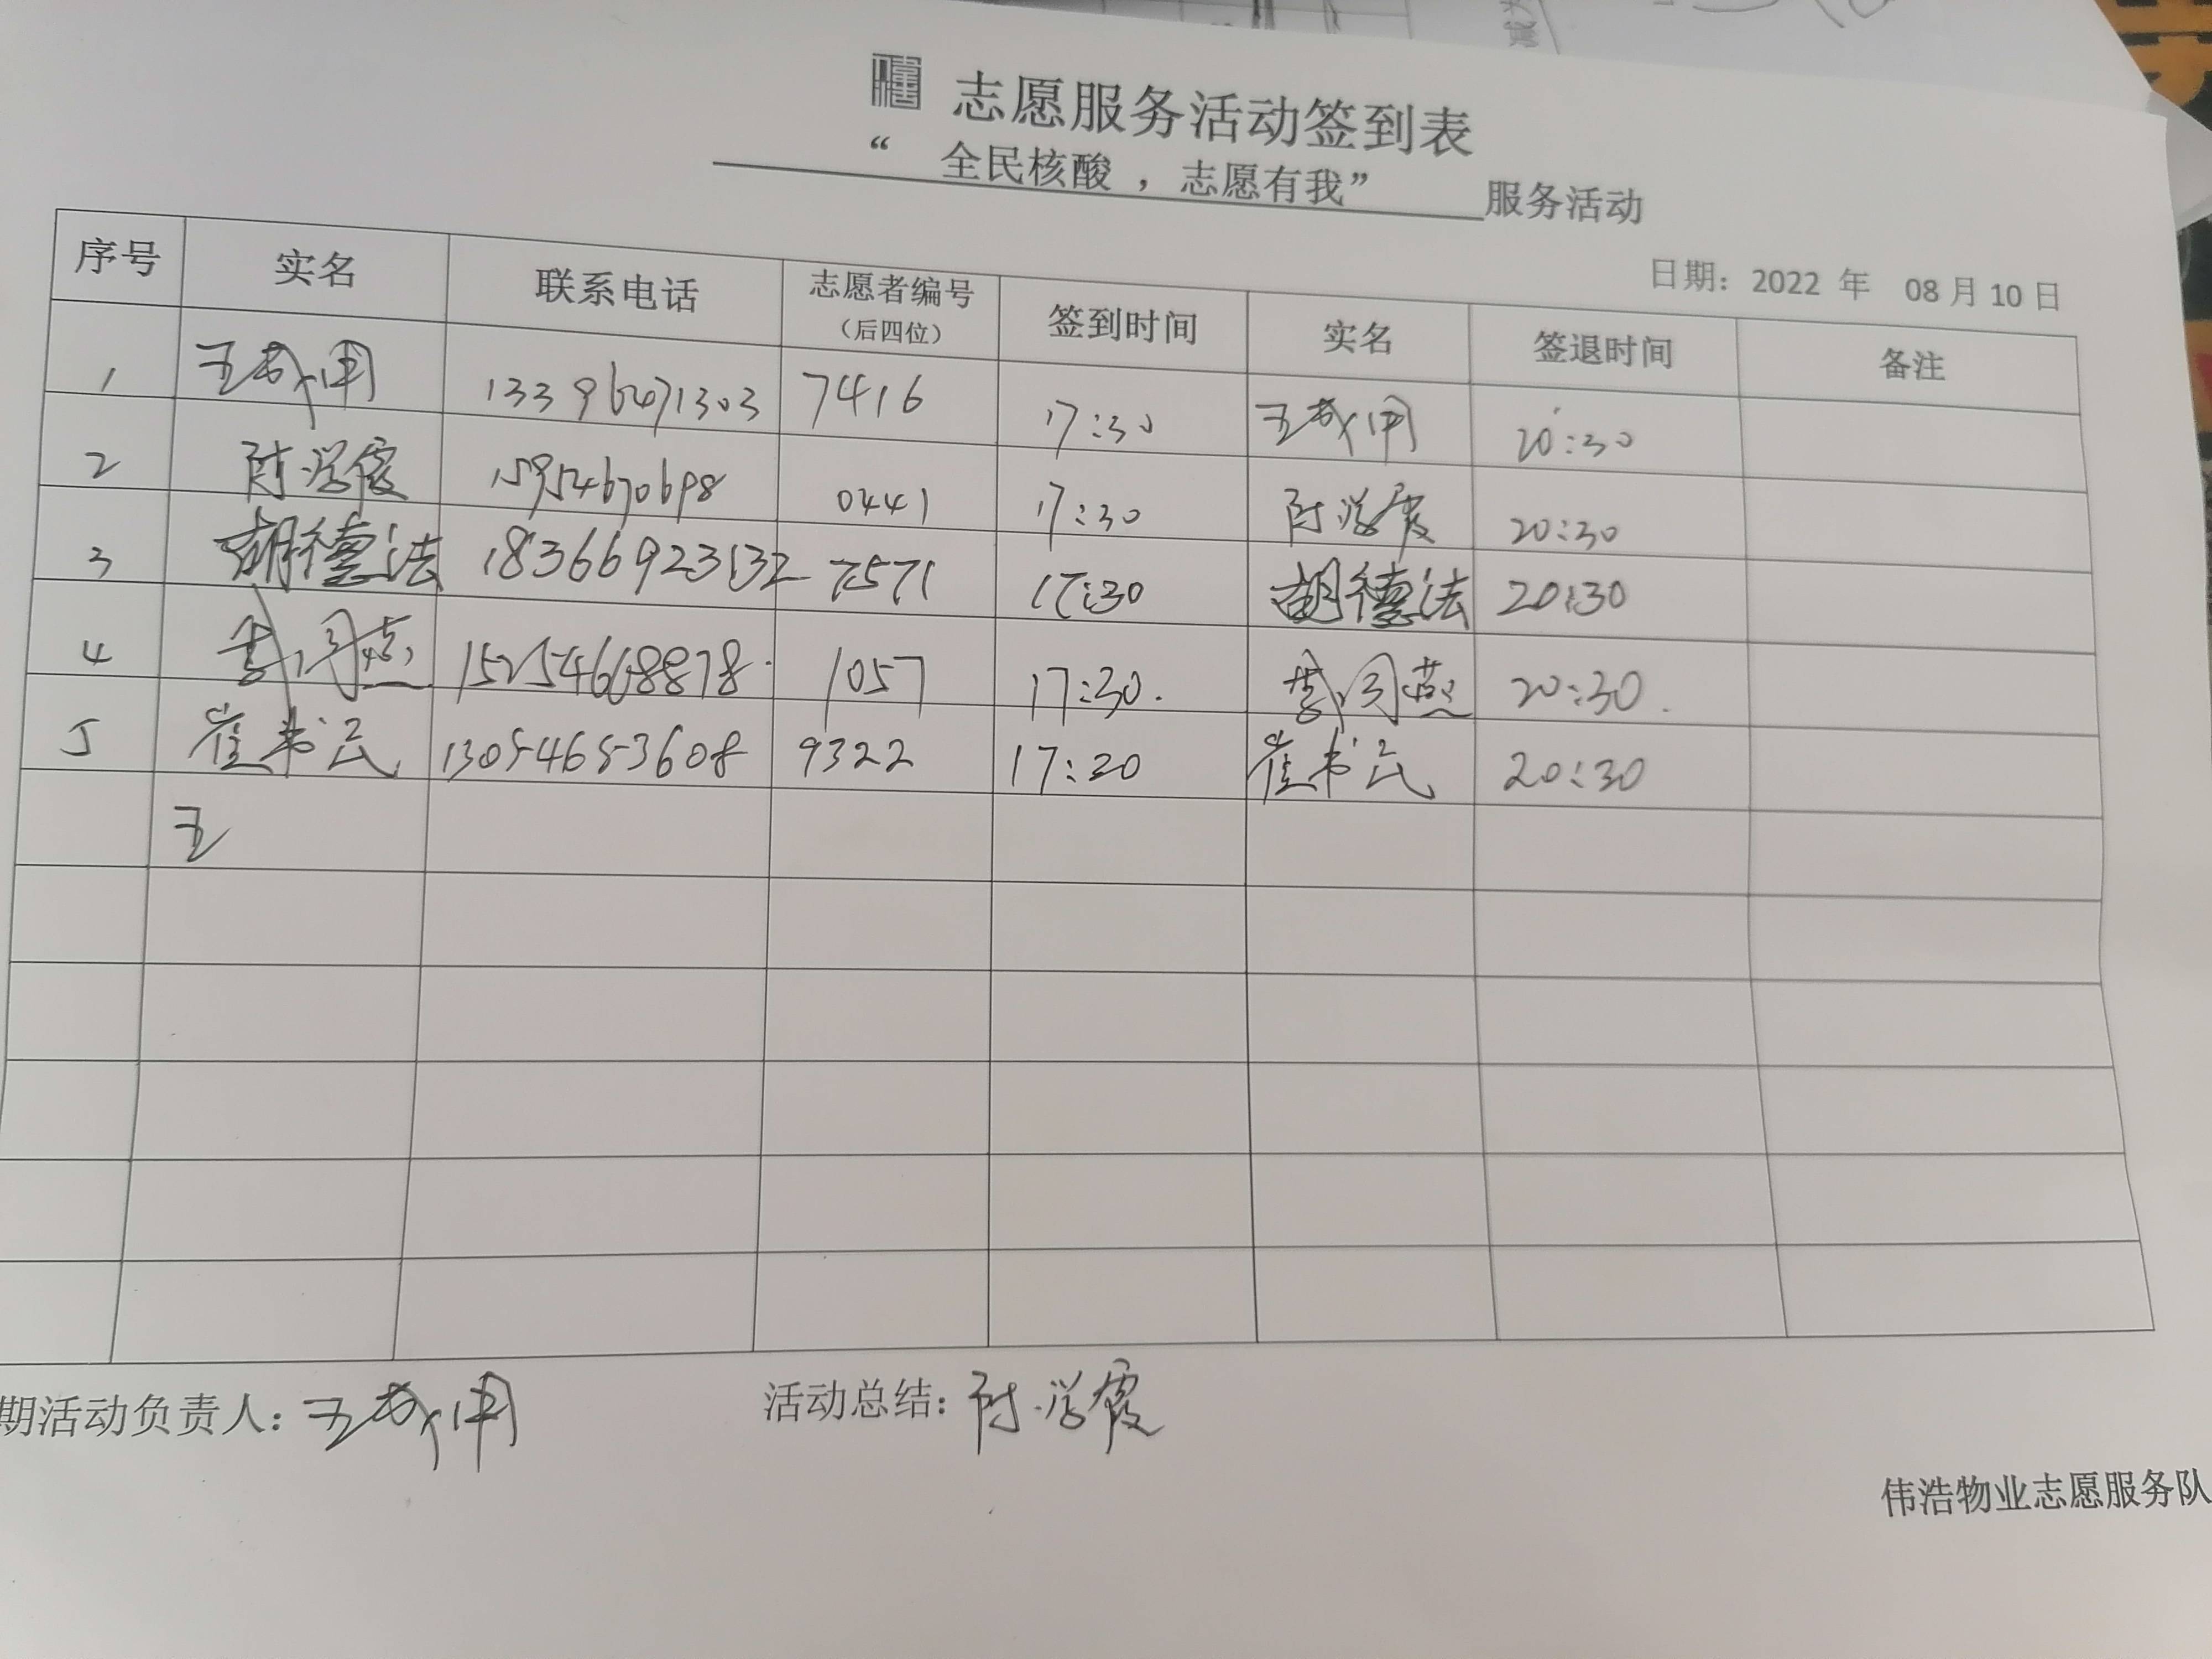 志愿服务活动签到表
“ 全民核酸 ，志愿有我” 服务活动
日期：2022 年 08月10日
序号 实名 联系电话 志愿者编号（后四位） 签到时间 实名 签退时间 备注
1 7416 17:30 20:30
2 15954670698 0441 17:30 20:30
3 胡德法 18366923132 7571 17:30 胡德法 20:30
4 15254668878 1057 17:30. 20:30.
5 崔书民 13054653608 9322 17:30 崔书民 20:30
王
期活动负责人： 活动总结：
伟浩物业志愿服务队